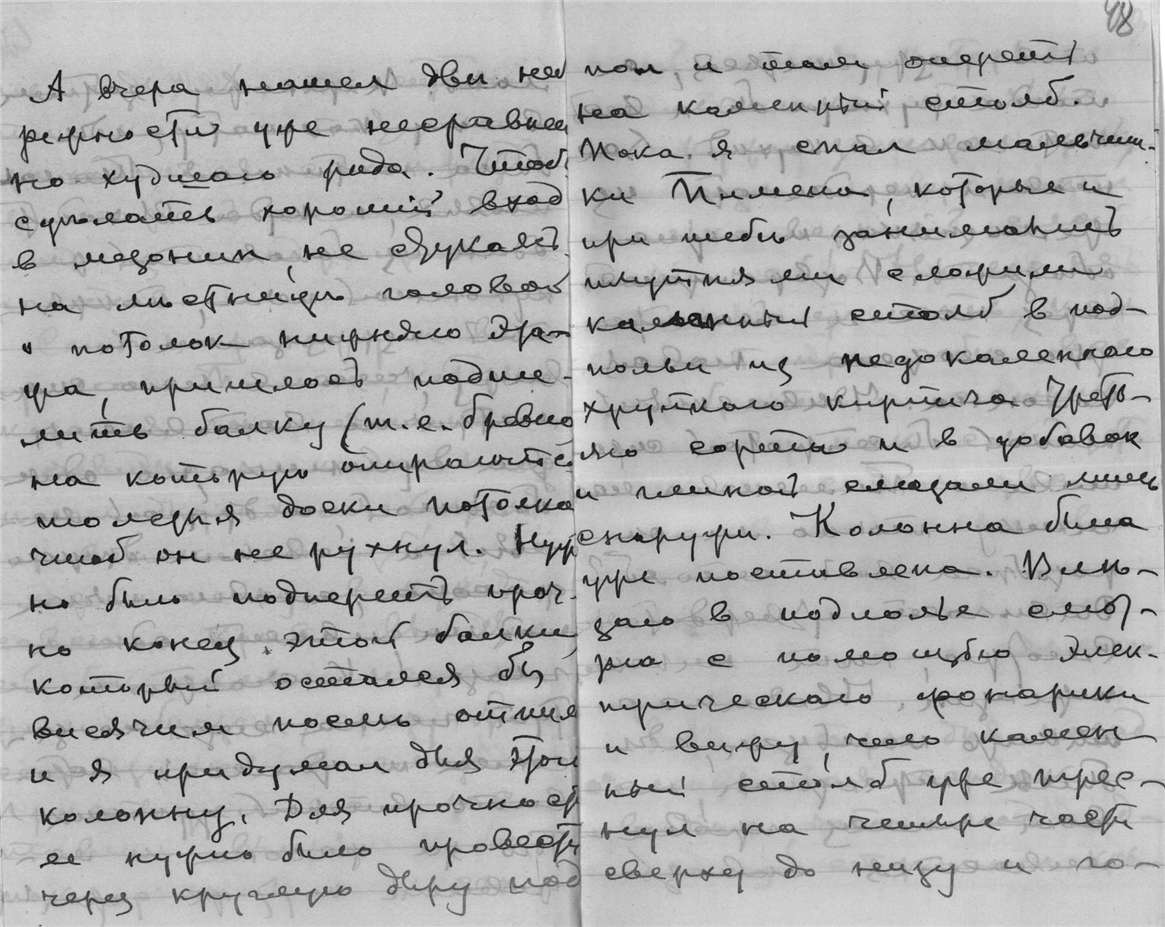 А вчера нашел две не
брежности уже несравнен
но худшего рода. Чтоб
сделать хороший вход
в мезонин, не стукаясь
на лестнице головой
о потолок нижнего эта-
жа, пришлось подпи-
лить балку (т.е. бревно
на которую опираются
толстыя доски потолка
чтоб он не рухнул. Нуж
но было подпереть проч-
но конец этой балки,
который остался бы
висячим после отпила
и я придумал для этой
колонну. Для прочности
ее нужно было провести
через круглую дыру под
пол и там опереть
на каменный столб.
Пока я спал мальчиш-
ки Пимена, которые и
при тебе занимались
плутнями сложили
каменный столб в под-
польи из недокаленного
хрупкого кирпича треть-
яго сорта и в добавок
и глиной смазали лишь
снаружи. Колонна была
уже поставлена. Влѣ-
заю в подполье смот-
рю с помощью элек-
трического фонарика
и вижу что камен-
ный столб уже трес-
нул на четыре части
сверху до низу и го-
48